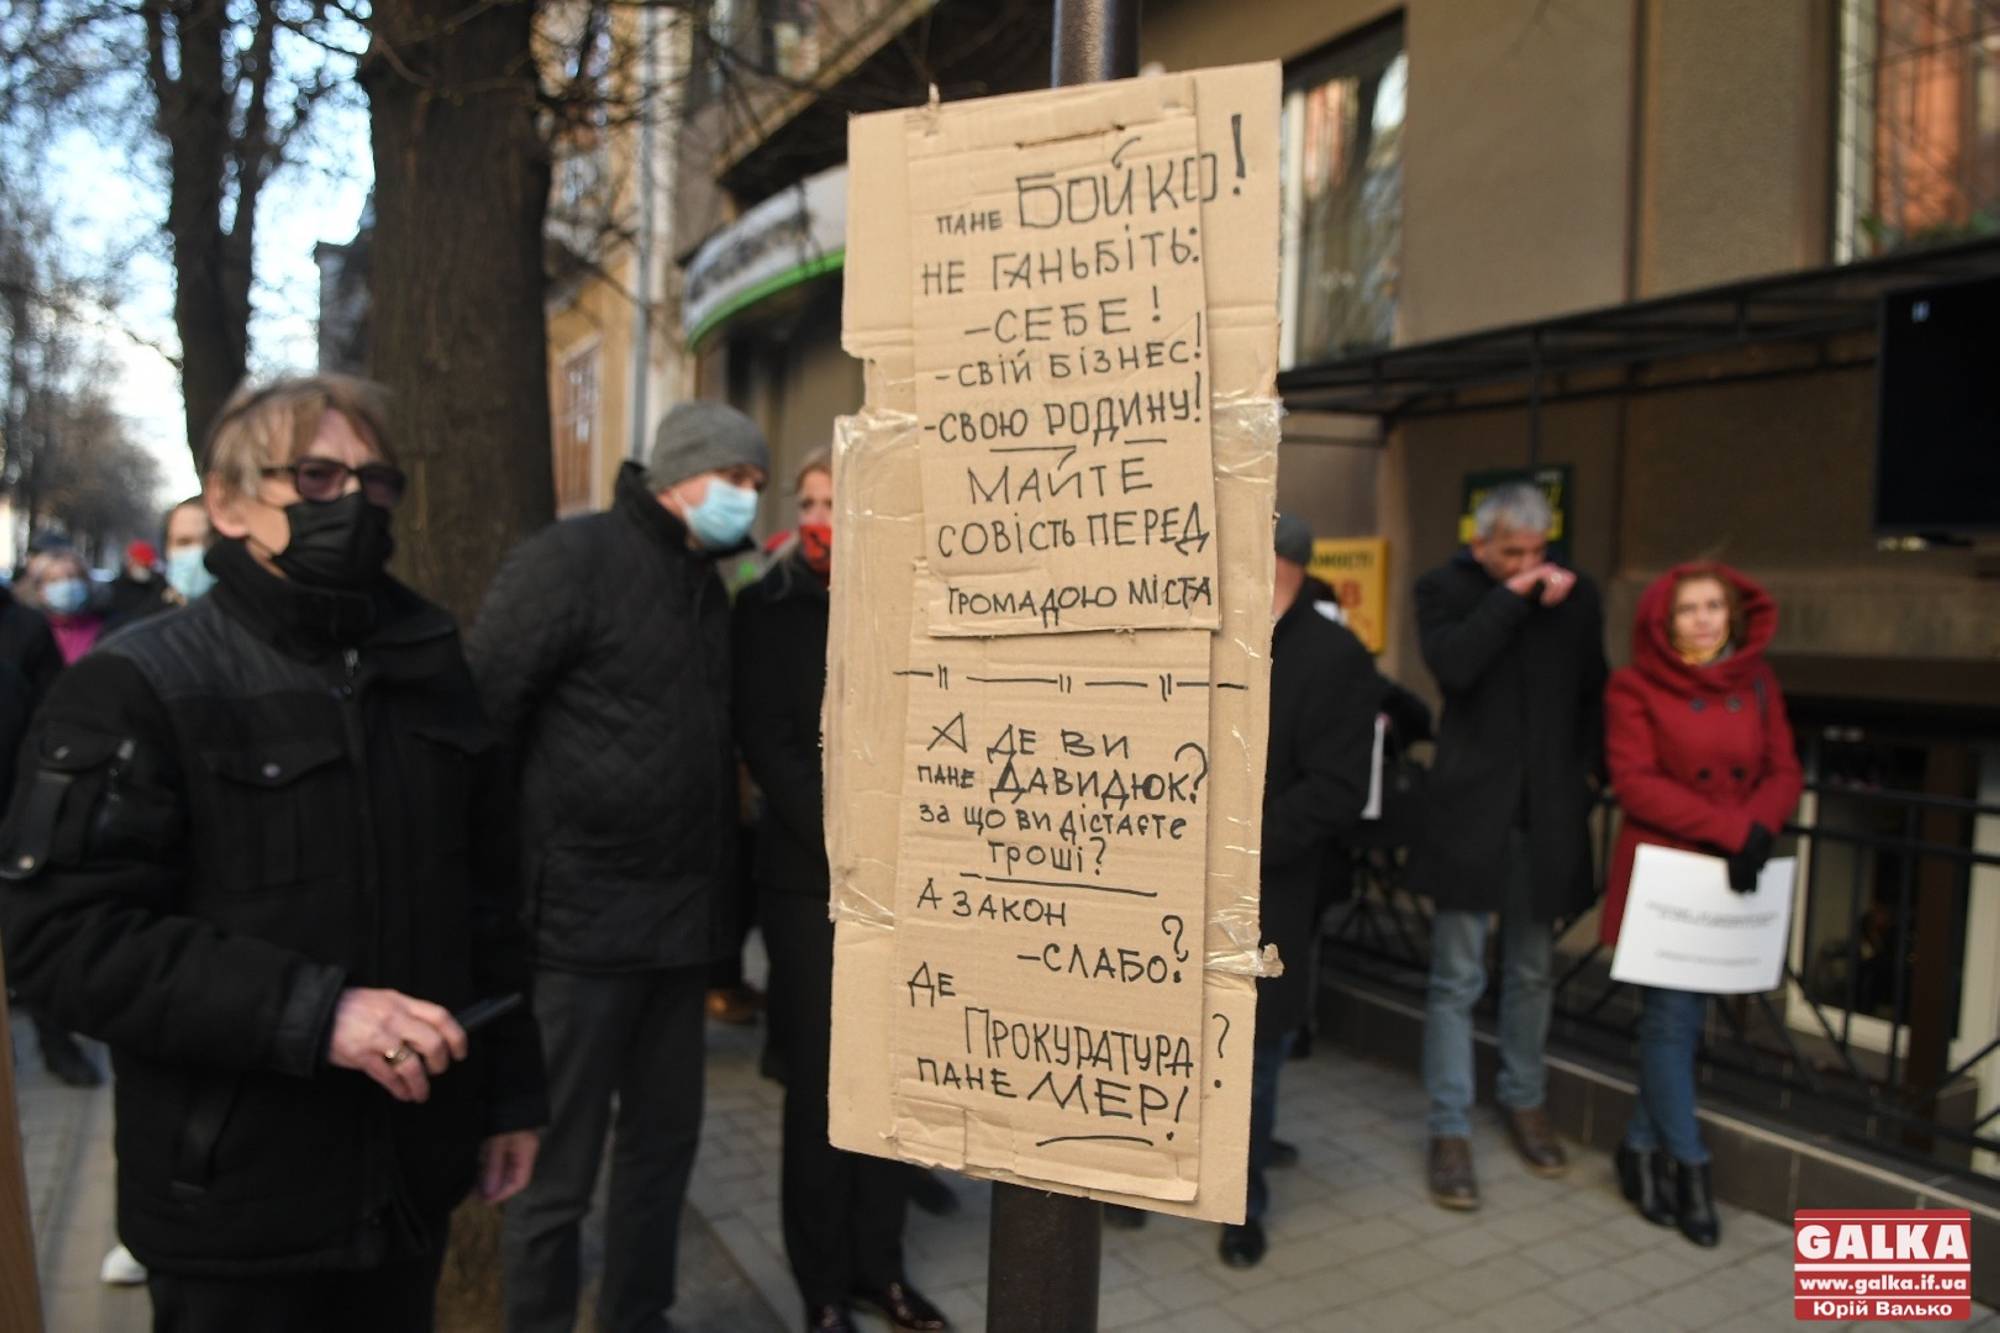 ПАНЕ БОЙКО!
НЕ ГАНЬБІТЬ:
-СЕБЕ!
-СВІЙ БІЗНЕС!
-СВОЮ РОДИНУ!
МАЙТЕ
СОВІСТЬ ПЕРЕД
ГРОМАДОЮ МІСТА
А ДЕ ВИ
ПАНЕ ДАВИДЮК?
за що ви дістаєте
гроші?
А ЗАКОН
-СЛАБО?
ДЕ
ПРОКУРАТУРА?
ПАНЕ МЕР!
GALKA
www.galka.if.ua
Юрій Валько